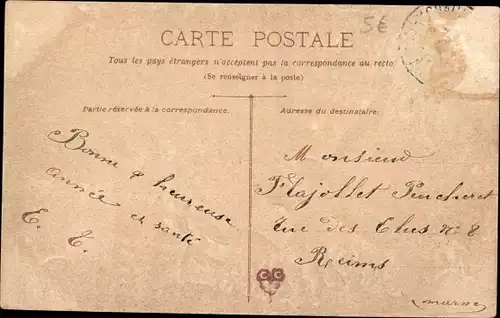 5€
CARTE POSTALE
Tous les pays étrangers n'acceptent pas la correspondance au recto
(Se renseigner à la poste)
Partie réservée à la correspondance.
Adresse du destinataire.
Bonne & heureuse
année et santé
E. T.
Monsieur
Flajollet
rue des Elus N° 8
Reims
Marne